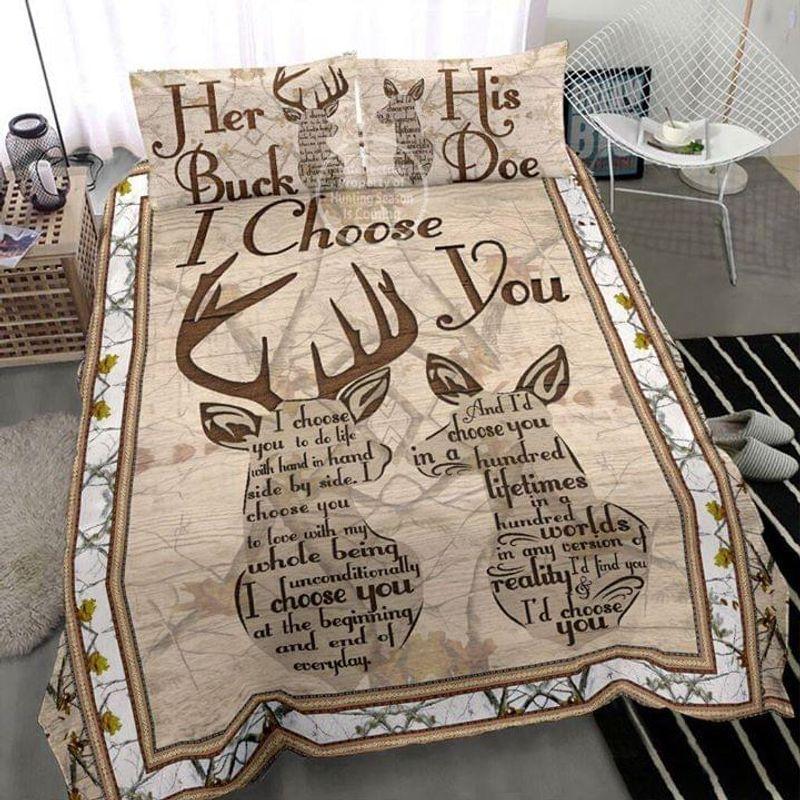 Her
Buck
His
Doe
Property of
Hunting Season
Is Coming
I Choose
You
I choose
you to do life
with hand in hand
side by side. I
choose you
to love with my
whole being
unconditionally
I choose you
at the beginning
and end of
everyday.
And I'd
choose you
in a hundred
lifetimes
in a
hundred
worlds
in any version of
reality I'd find you
&
I'd choose
you